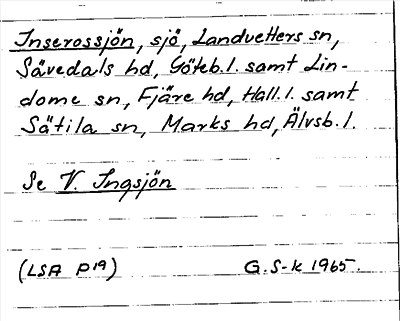 Inserossjön, sjö, Landvetters sn,
Sävedals hd, Göteb. l. samt Lin-
dome sn, Fjäre hd, Hall. l. samt
Sätila sn, Marks hd, Älvsb. l.
Se V. Ingsjön
(LSA P19) G. S-k 1965.